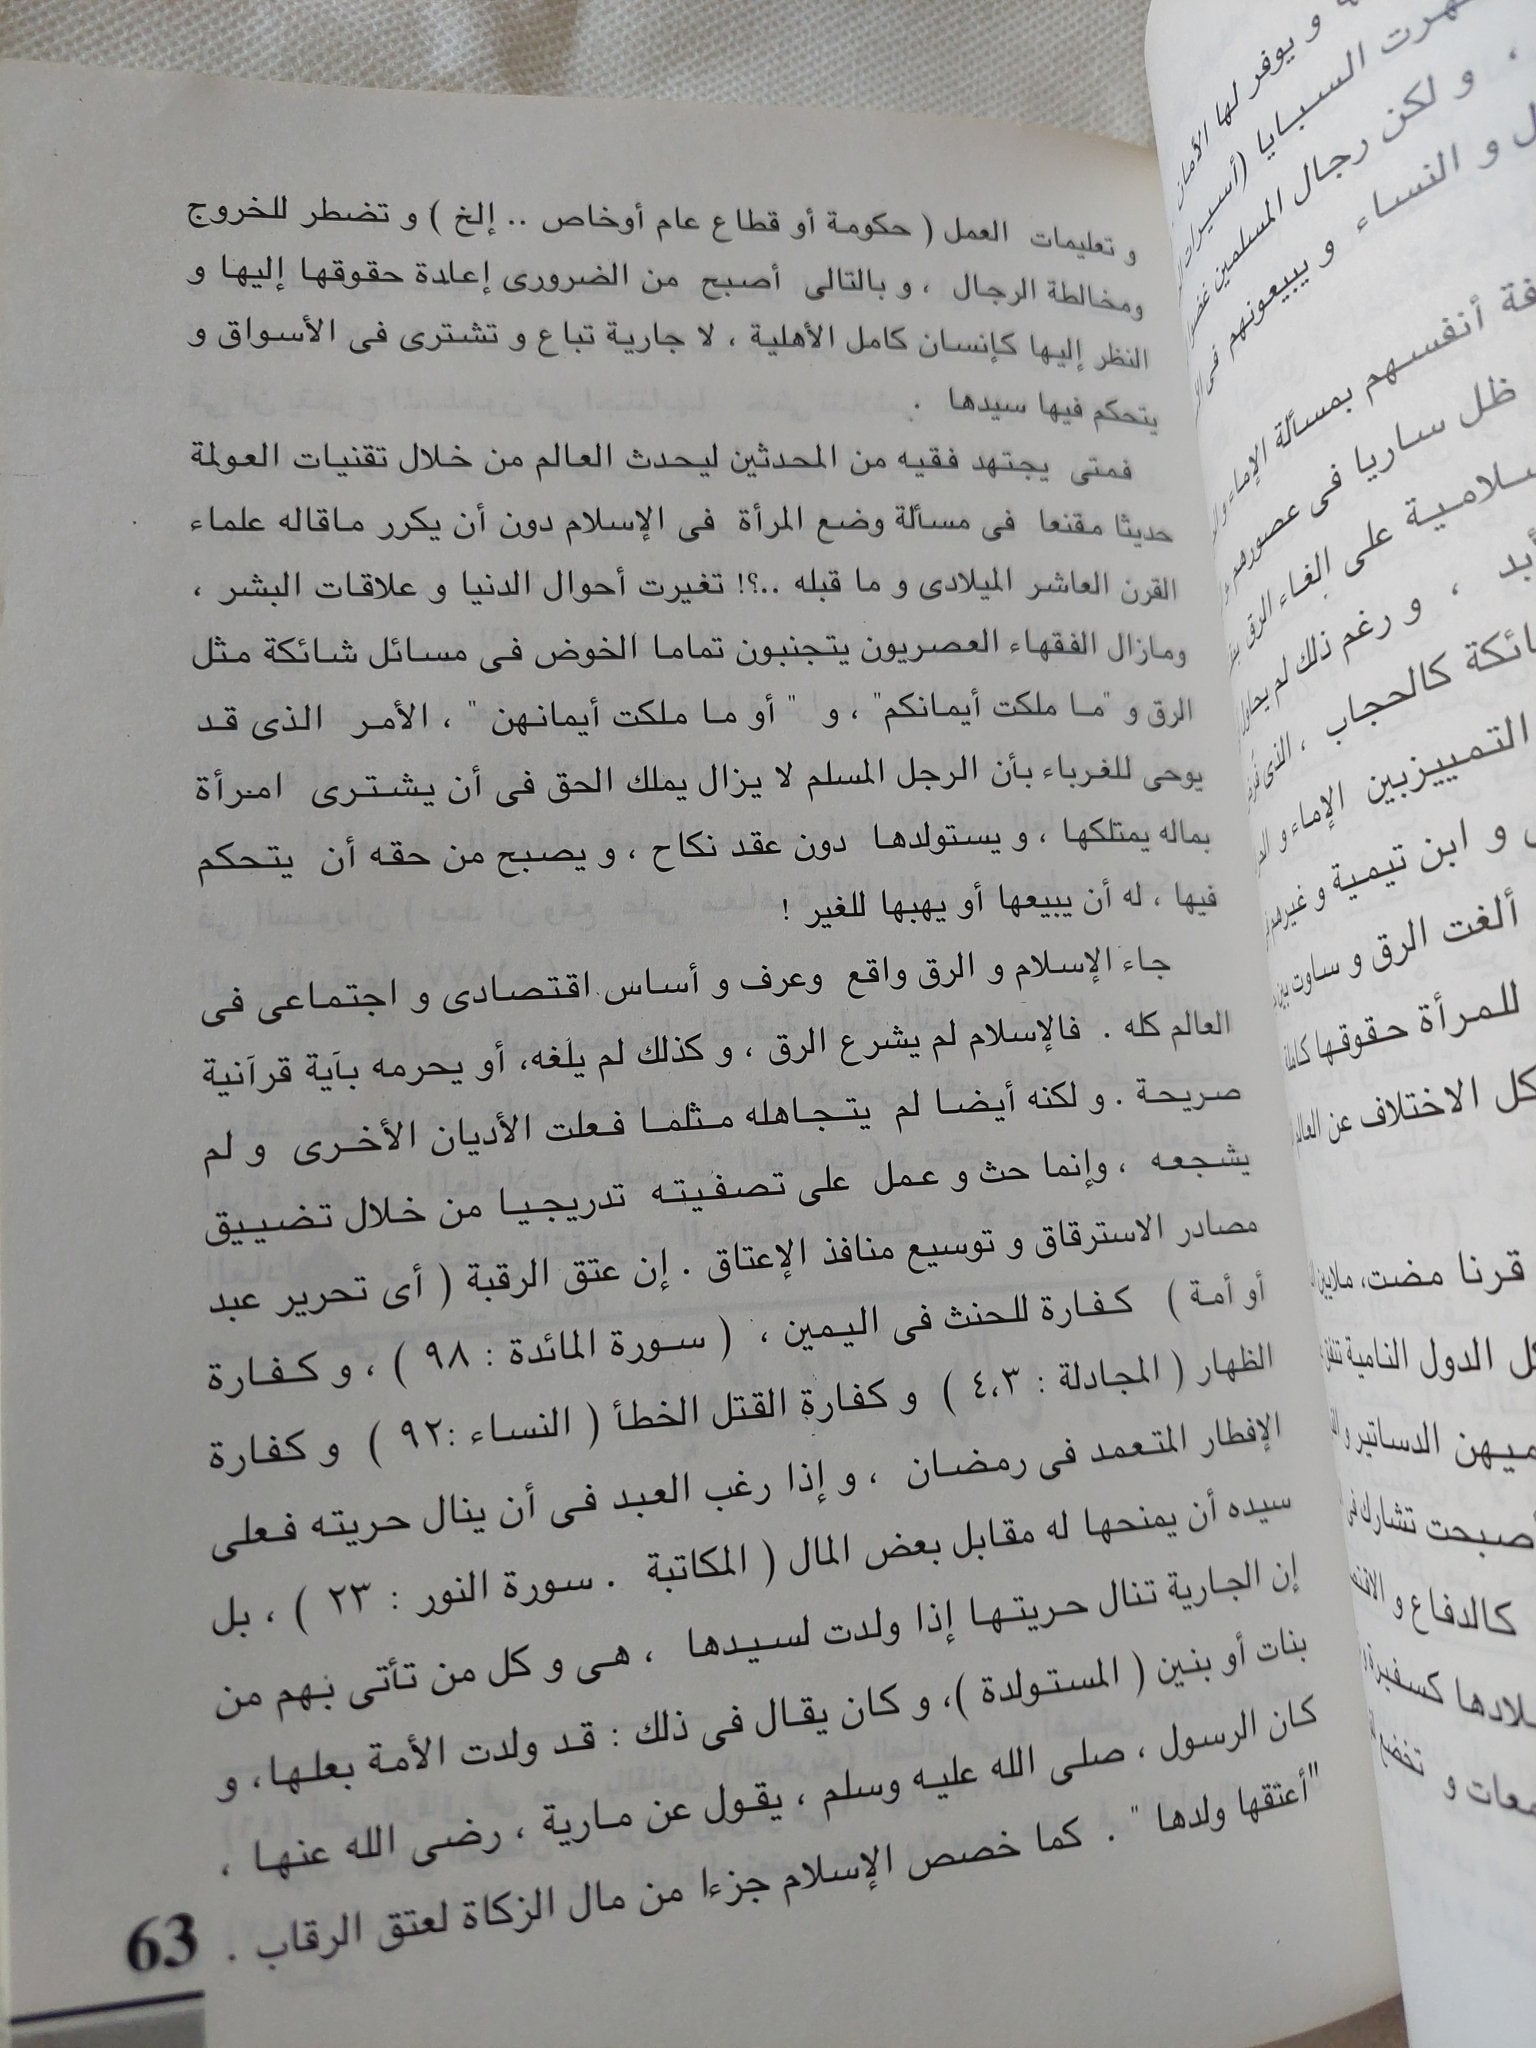 و تعليمات العمل ( حكومة أو قطاع عام أوخاص .. إلخ ) و تضطر للخروج
ومخالطة الرجال ، و بالتالى أصبح من الضرورى إعادة حقوقها إليها و
النظر إليها كإنسان كامل الأهلية ، لا جارية تباع و تشترى فى الأسواق و
يتحكم فيها سيدها .
فمتى يجتهد فقيه من المحدثين ليحدث العالم من خلال تقنيات العولمة
حديثا مقنعا فى مسألة وضع المرأة فى الإسلام دون أن يكرر ماقاله علماء
القرن العاشر الميلادى و ما قبله ..؟! تغيرت أحوال الدنيا و علاقات البشر ،
ومازال الفقهاء العصريون يتجنبون تماما الخوض فى مسائل شائكة مثل
الرق و "ما ملكت أيمانكم" ، و " أو ما ملكت أيمانهن " ، الأمر الذى قد
يوحى للغرباء بأن الرجل المسلم لا يزال يملك الحق فى أن يشترى امرأة
بماله يمتلكها ، و يستولدها دون عقد نكاح ، و يصبح من حقه أن يتحكم
فيها ، له أن يبيعها أو يهبها للغير !
جاء الإسلام و الرق واقع وعرف و أساس اقتصادى و اجتماعى فى
العالم كله . فالإسلام لم يشرع الرق ، و كذلك لم يلغه، أو يحرمه بآية قرآنية
صريحة . و لكنه أيضا لم يتجاهله مثلما فعلت الأديان الأخرى و لم
يشجعه ، وإنما حث و عمل على تصفيته تدريجيا من خلال تضييق
مصادر الاسترقاق و توسيع منافذ الإعتاق . إن عتق الرقبة ( أى تحرير عبد
أو أمة ) كفارة للحنث فى اليمين ، ( سورة المائدة : ٩٨ ) ، و كفارة
الظهار ( المجادلة : ٤،٣ ) و كفارة القتل الخطأ ( النساء :٩٢ ) و كفارة
الإفطار المتعمد فى رمضان ، و إذا رغب العبد فى أن ينال حريته فعلى
سيده أن يمنحها له مقابل بعض المال ( المكاتبة . سورة النور : ٢٣ ) ، بل
إن الجارية تنال حريتها إذا ولدت لسيدها ، هى و كل من تأتى بهم من
بنات أو بنين ( المستولدة )، و كان يقال فى ذلك : قد ولدت الأمة بعلها، و
كان الرسول ، صلى الله عليه وسلم ، يقول عن مارية ، رضى الله عنها ،
"أعتقها ولدها " . كما خصص الإسلام جزءا من مال الزكاة لعتق الرقاب .
63
و يوفر لها الأمان
السبايا
، و لكن رجال المسلمين
و النساء و يبيعونهم فى
أنفسهم بمسألة الإماء
ظل ساريا فى عصورهم
على الغاء الرق
، و رغم ذلك لم
كالحجاب ، الذى
التمييزبين الإماء و
و ابن تيمية و غيرهم
ألغت الرق و ساوت بين
للمرأة حقوقها كاملة
كل الاختلاف عن العالم
قرنا مضت، ملايين
الدول النامية
الدساتير و
أصبحت تشارك فى
كالدفاع و
كسفيرة
و تخضع